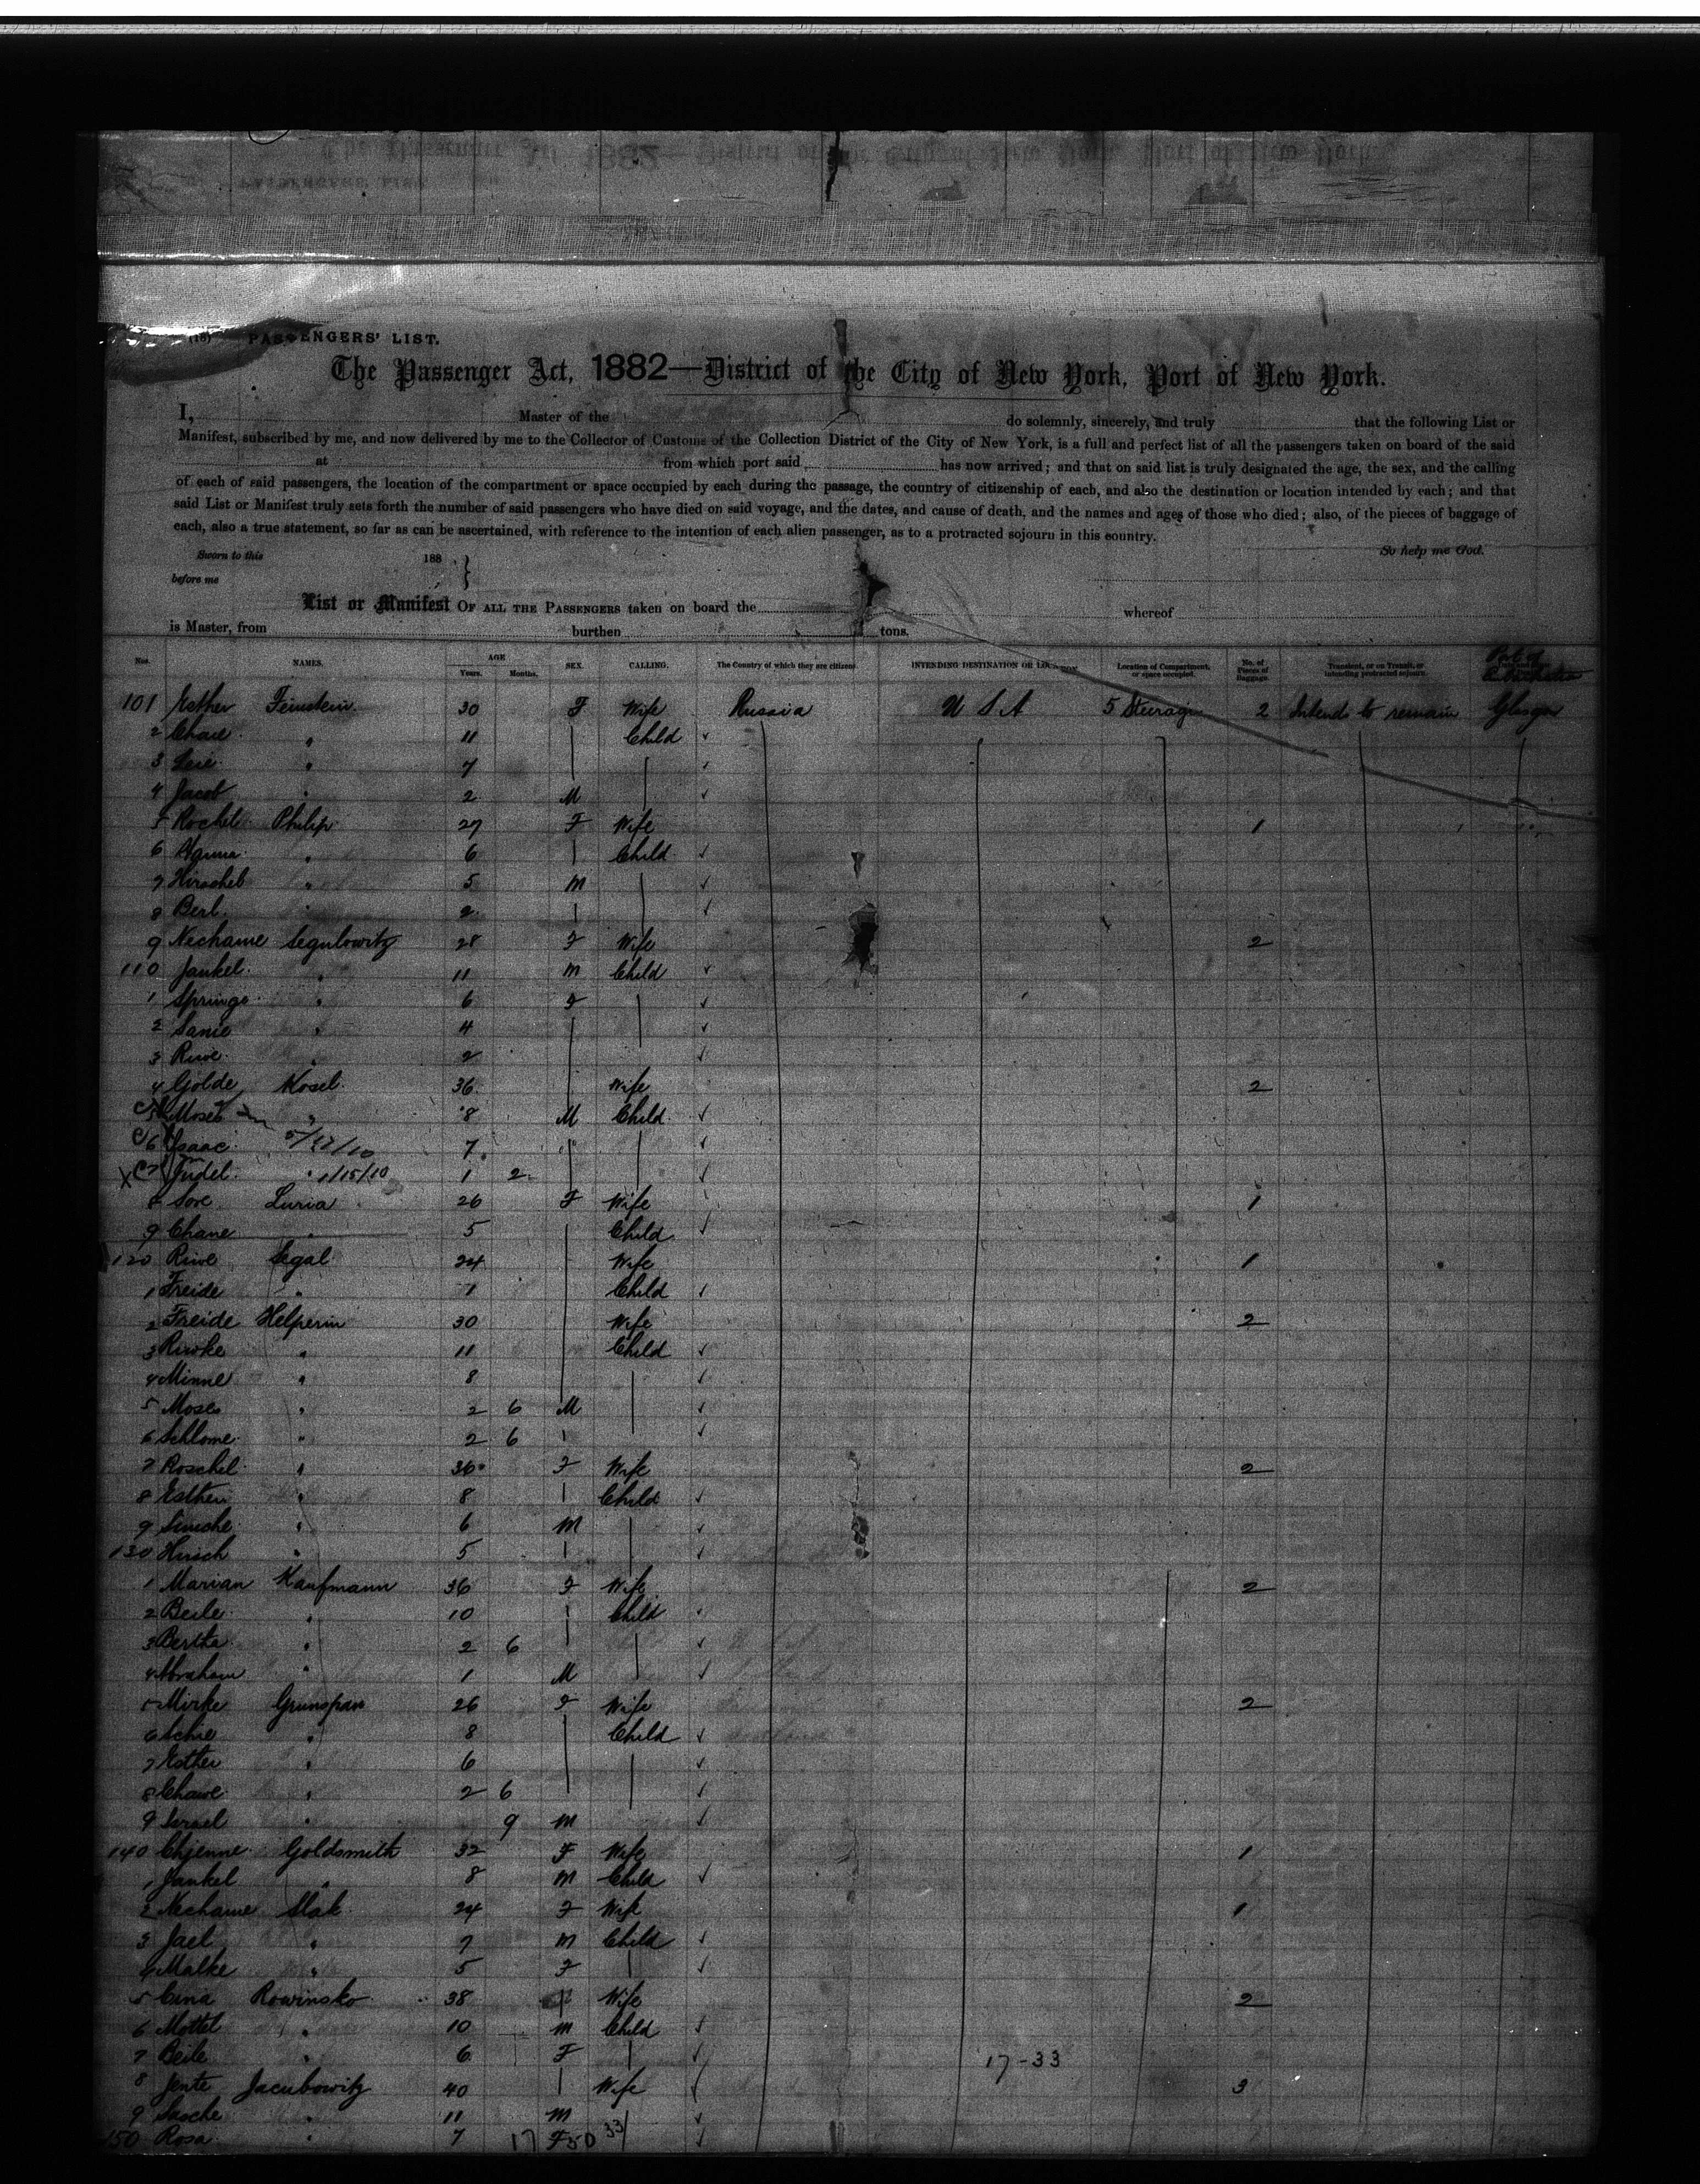 (18) PASSENGERS' LIST.
The Passenger Act, 1882—District of the City of New York, Port of New York.
I, Master of the do solemnly, sincerely, and truly that the following List or
Manifest, subscribed by me, and now delivered by me to the Collector of Customs of the Collection District of the City of New York, is a full and perfect list of all the passengers taken on board of the said
at from which port said has now arrived; and that on said list is truly designated the age, the sex, and the calling
of each of said passengers, the location of the compartment or space occupied by each during the passage, the country of citizenship of each, and also the destination or location intended by each; and that
said List or Manifest truly sets forth the number of said passengers who have died on said voyage, and the dates, and cause of death, and the names and ages of those who died; also, of the pieces of baggage of
each, also a true statement, so far as can be ascertained, with reference to the intention of each alien passenger, as to a protracted sojourn in this country.
So help me God.
Sworn to this 188
before me
List or Manifest OF ALL THE PASSENGERS taken on board the whereof
is Master, from burthen tons.
Nos. NAMES. AGE Years. Months. SEX. CALLING. The Country of which they are citizens. INTENDING DESTINATION OR Location of Compartment, or space occupied. No. of Pieces of Baggage. Transient, or on Transit, or intending protracted sojourn. Port of
101 Esther Feinstein 30 F Wife Russia U S A 5 Steerage 2 Intends to remain Glasgow
2 " 11 Child
3 " 7
4 Jacob " 2 M
5 Rochel Philip 27 F Wife 1
6 " 6 Child
7 Hirschel " 5 M
8 Berl " 2
9 Nechame Segulowitz 28 F Wife 2
110 Jankel " 11 M Child
1 Springe " 6 F
2 " 4
3 Riwe " 2
4 Golde Kosel 36 Wife 2
5 Moses " 8 M Child
6 Isaac 7
7 Judel " 1/15/10 1 2
8 Sore Luria 26 F Wife 1
9 Chane " 5 Child
120 Riwe Segal 24 Wife 1
1 Freide " 1 Child
2 Freide Helperin 30 Wife 2
3 Riwke " 11 Child
4 Minne " 8
5 Moses " 2 6 M
6 Schlome " 2 6
7 Roschel " 36 F Wife 2
8 Esther " 8 Child
9 Simche " 6 M
130 Hirsch " 5
1 Marian Kaufmann 36 F Wife 2
2 Beile " 10 Child
3 Bertha " 2 6
4 Abraham " 1 M
5 Mirke Grunspan 26 F Wife 2
6 " 8 Child
7 Esther " 6
8 Chawe " 2 6
9 Israel " 9 M
140 Chjenne Goldsmith 32 F Wife 1
1 Jankel " 8 M Child
2 Nechame Slak 24 F Wife 1
3 Jael " 7 M Child
4 Malke " 5 F
5 Rowinsko 38 Wife 2
6 Mottel " 10 M Child
7 Beile " 6 F 17-33
8 Jente Jacubowitz 40 Wife 3
9 " 11 M
150 Rosa " 7 F
17 50 33